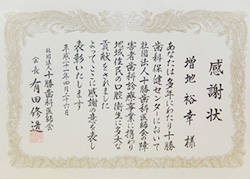 感謝状
増地裕幸 様
あなたは多年にわたり十勝
歯科保健センターにおいて
社団法人十勝歯科医師会の障
害者歯科診療事業に携わり
地域住民の口腔衛生に多大な
貢献をされました
よってここに感謝の意を表し
表彰いたします
平成二十一年四月二十六日
社団法人十勝歯科医師会
会長 有田修造